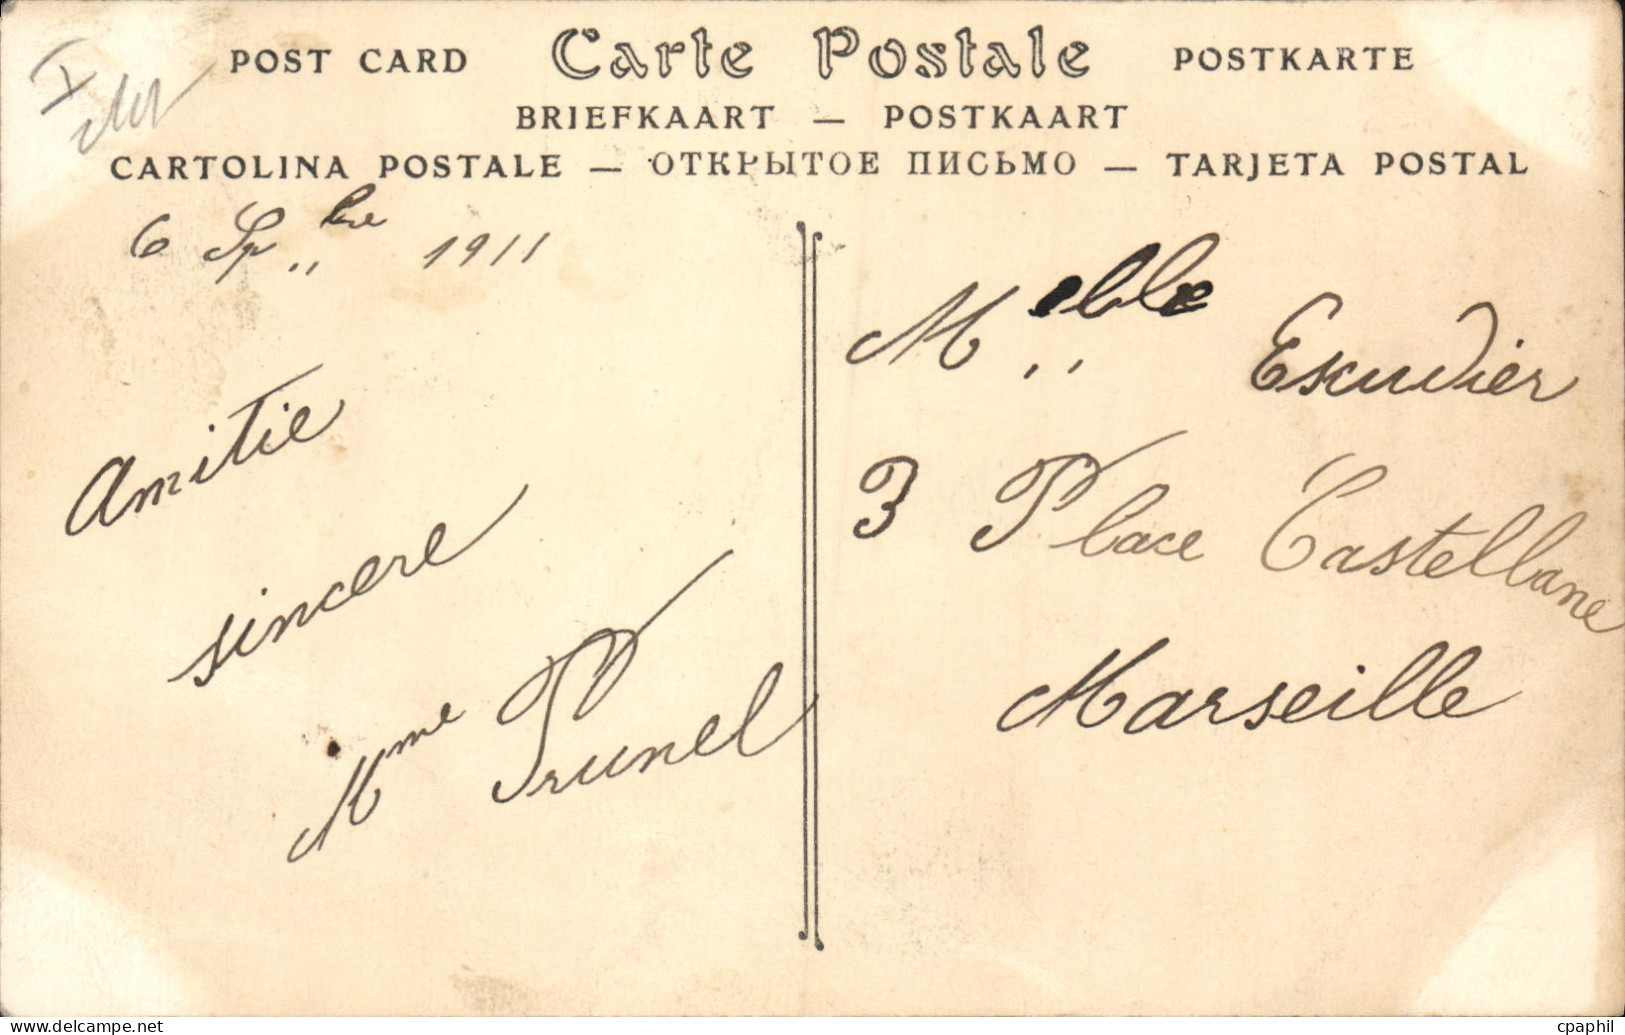 POST CARD Carte Postale POSTKARTE
BRIEFKAART — POSTKAART
CARTOLINA POSTALE — ОТКРЫТОЕ ПИСЬМО — TARJETA POSTAL
6 Sp bre 1911
Amitie
sincere
Mme Prunel
Melle Escudier
3 Place Castellane
Marseille
delcampe.net
cpaphil